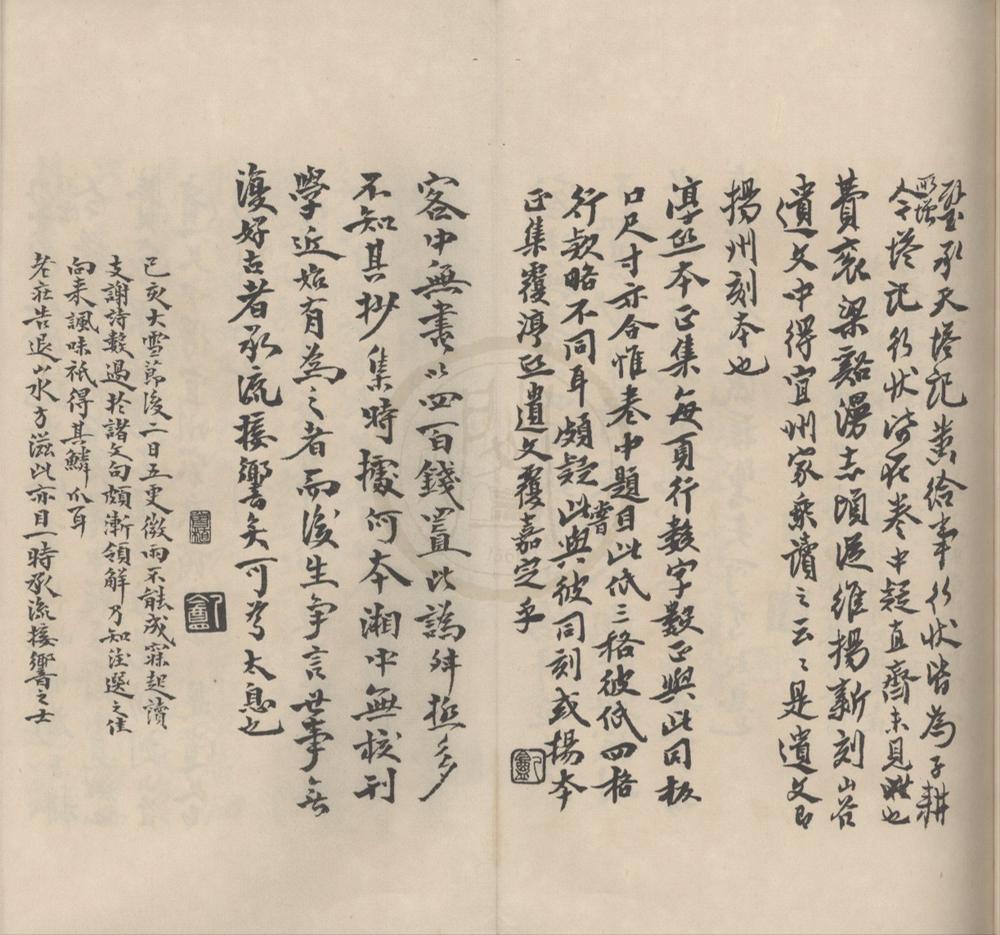 承天塔記黃給事行狀皆為子耕
今塔記行狀皆在卷中疑直齋未見此也
費袞梁谿漫志頃過維揚新刻山谷
遺文中得宜州家乘讀之云云是遺文即
揚州刻本也
淳熙本正集每頁行數字數正與此同板
口尺寸亦合惟卷中題目此低三格彼低四格
行款略不同耳頗疑此與彼同刻或揚本
正集覆淳熙遺文覆嘉定乎
客中無書以四百錢置此譌舛極多
不知其抄集時據何本湘中無校刊
學近始有為之者而後生爭言世事無
復好古者承流接響矣可為太息也
己亥大雪節後二日五更微雨不能成寐起讀
支謝詩數過於諸文句頗漸領解乃知注選之佳
向來諷味祇得其鱗爪耳
老莊告退山水方滋此亦目一時承流接響之士